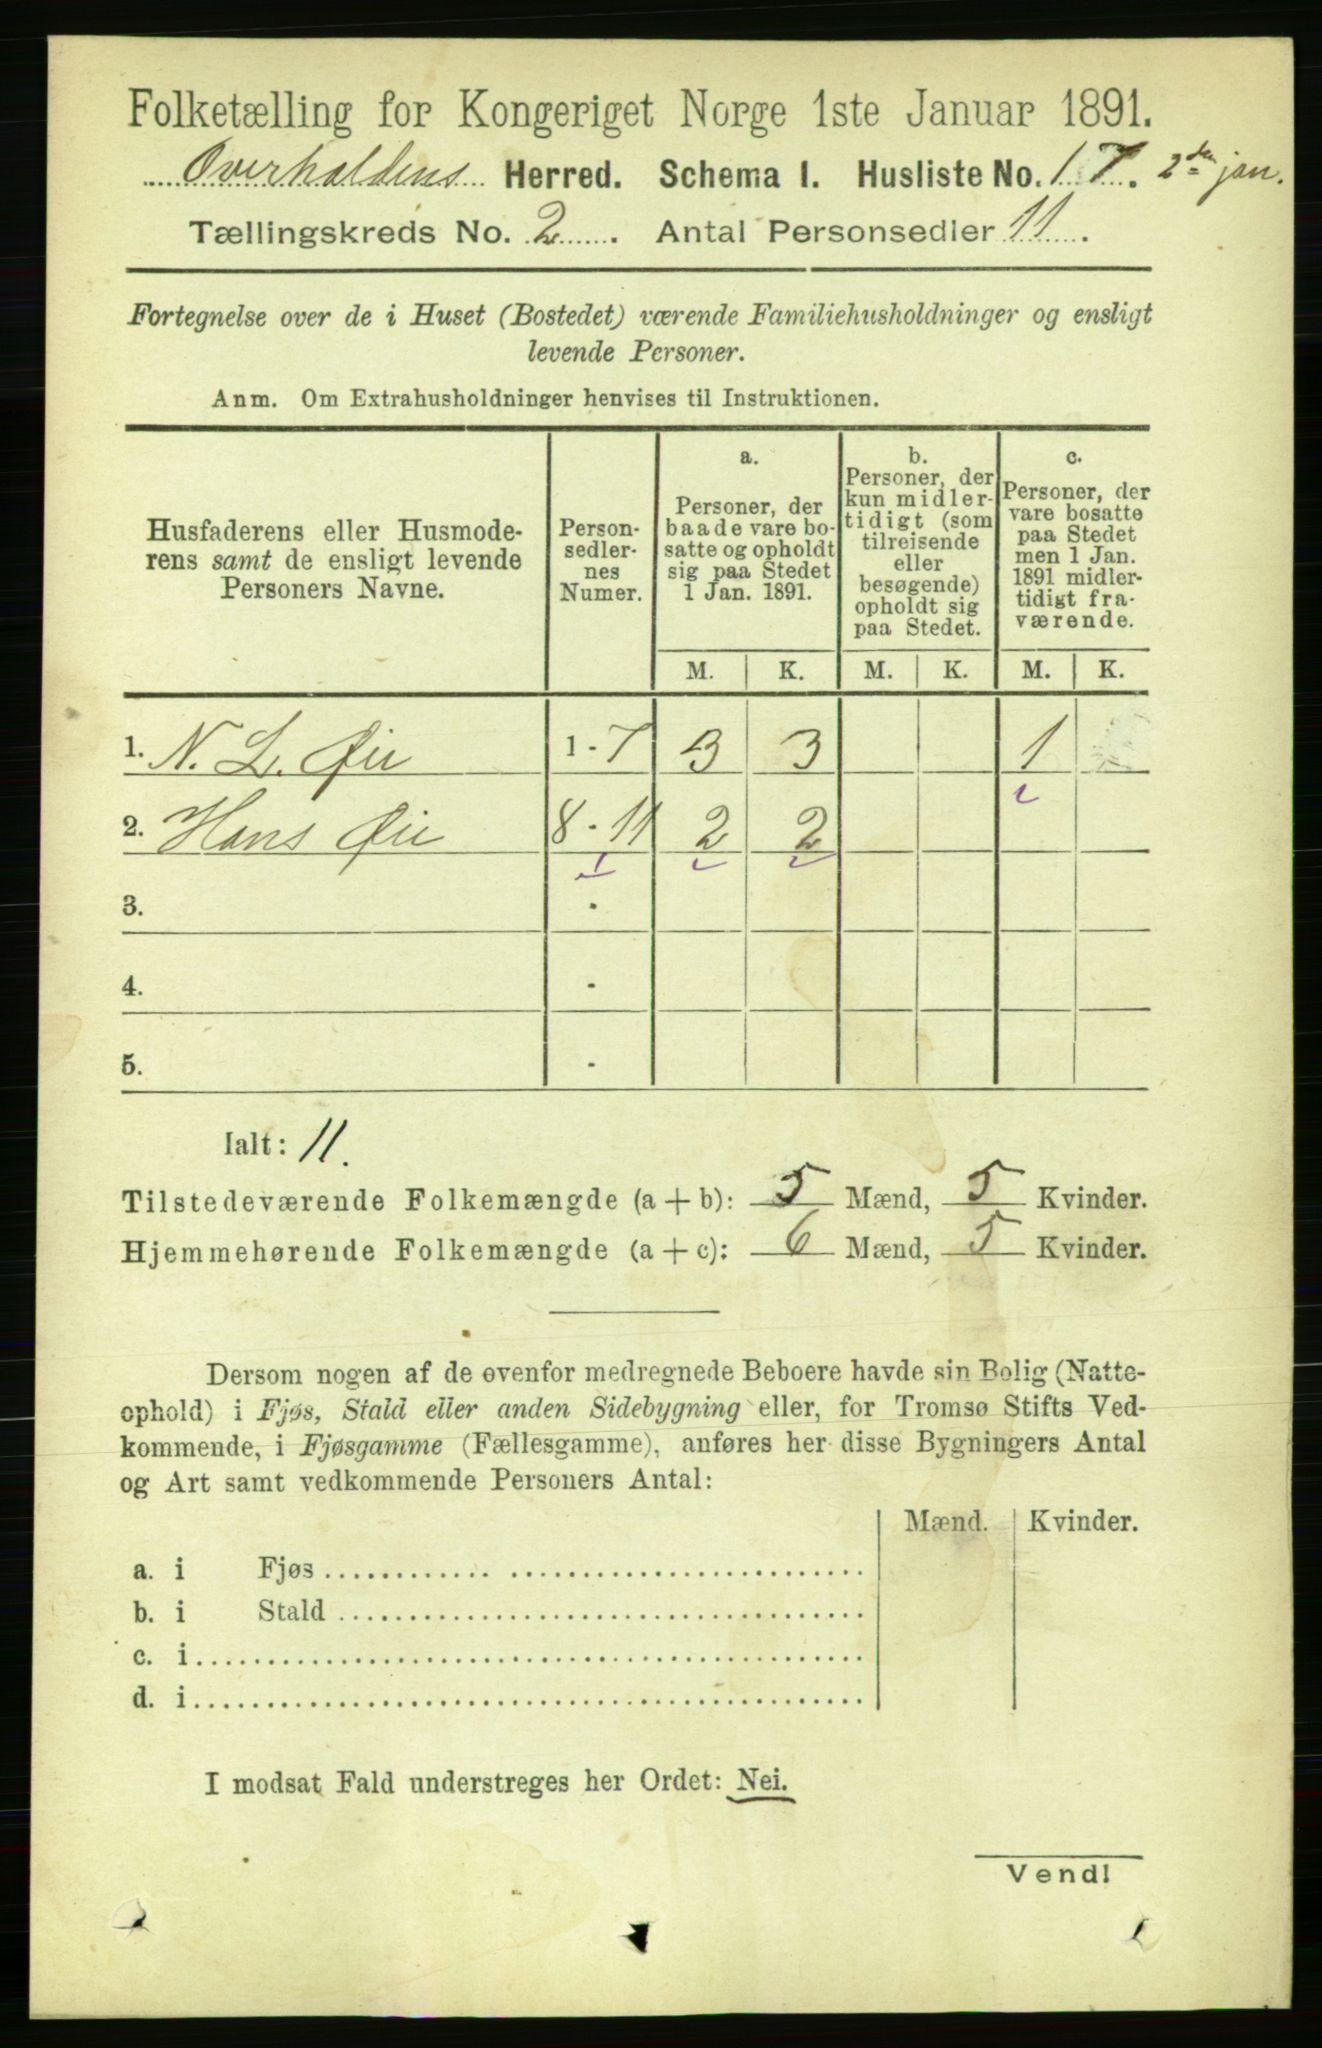 Folketælling for Kongeriget Norge 1ste Januar 1891.
Overhaldens Herred. Schema I. Husliste No. 17. 2den jan.
Tællingskreds No. 2. Antal Personsedler 11.
Fortegnelse over de i Huset (Bostedet) værende Familiehusholdninger og ensligt
levende Personer.
Anm. Om Extrahusholdninger henvises til Instruktionen.
Husfaderens eller Husmode-
rens samt de ensligt levende
Personers Navne.
Person-
sedler-
nes
Numer.
a.
Personer, der
baade vare bo-
satte og opholdt
sig paa Stedet
1 Jan. 1891.
b.
Personer, der
kun midler-
tidigt (som
tilreisende
eller
besøgende)
opholdt sig
paa Stedet.
c.
Personer, der
vare bosatte
paa Stedet
men 1 Jan.
1891 midler-
tidigt fra-
værende.
M. K. M. K. M. K.
1. N. L. Øie 1 - 7 3 3 1
2. Hans Øie 8 - 11 2 2
3. -
4. -
5. -
Ialt: 11.
Tilstedeværende Folkemængde (a + b): 5 Mænd, 5 Kvinder.
Hjemmehørende Folkemængde (a + c): 6 Mænd, 5 Kvinder.
Dersom nogen af de ovenfor medregnede Beboere havde sin Bolig (Natte-
ophold) i Fjøs, Stald eller anden Sidebygning eller, for Tromsø Stifts Ved-
kommende, i Fjøsgamme (Fællesgamme), anføres her disse Bygningers Antal
og Art samt vedkommende Personers Antal:
Mænd. Kvinder.
a. i Fjøs
b. i Stald
c. i
d. i
I modsat Fald understreges her Ordet: Nei.
Vend!